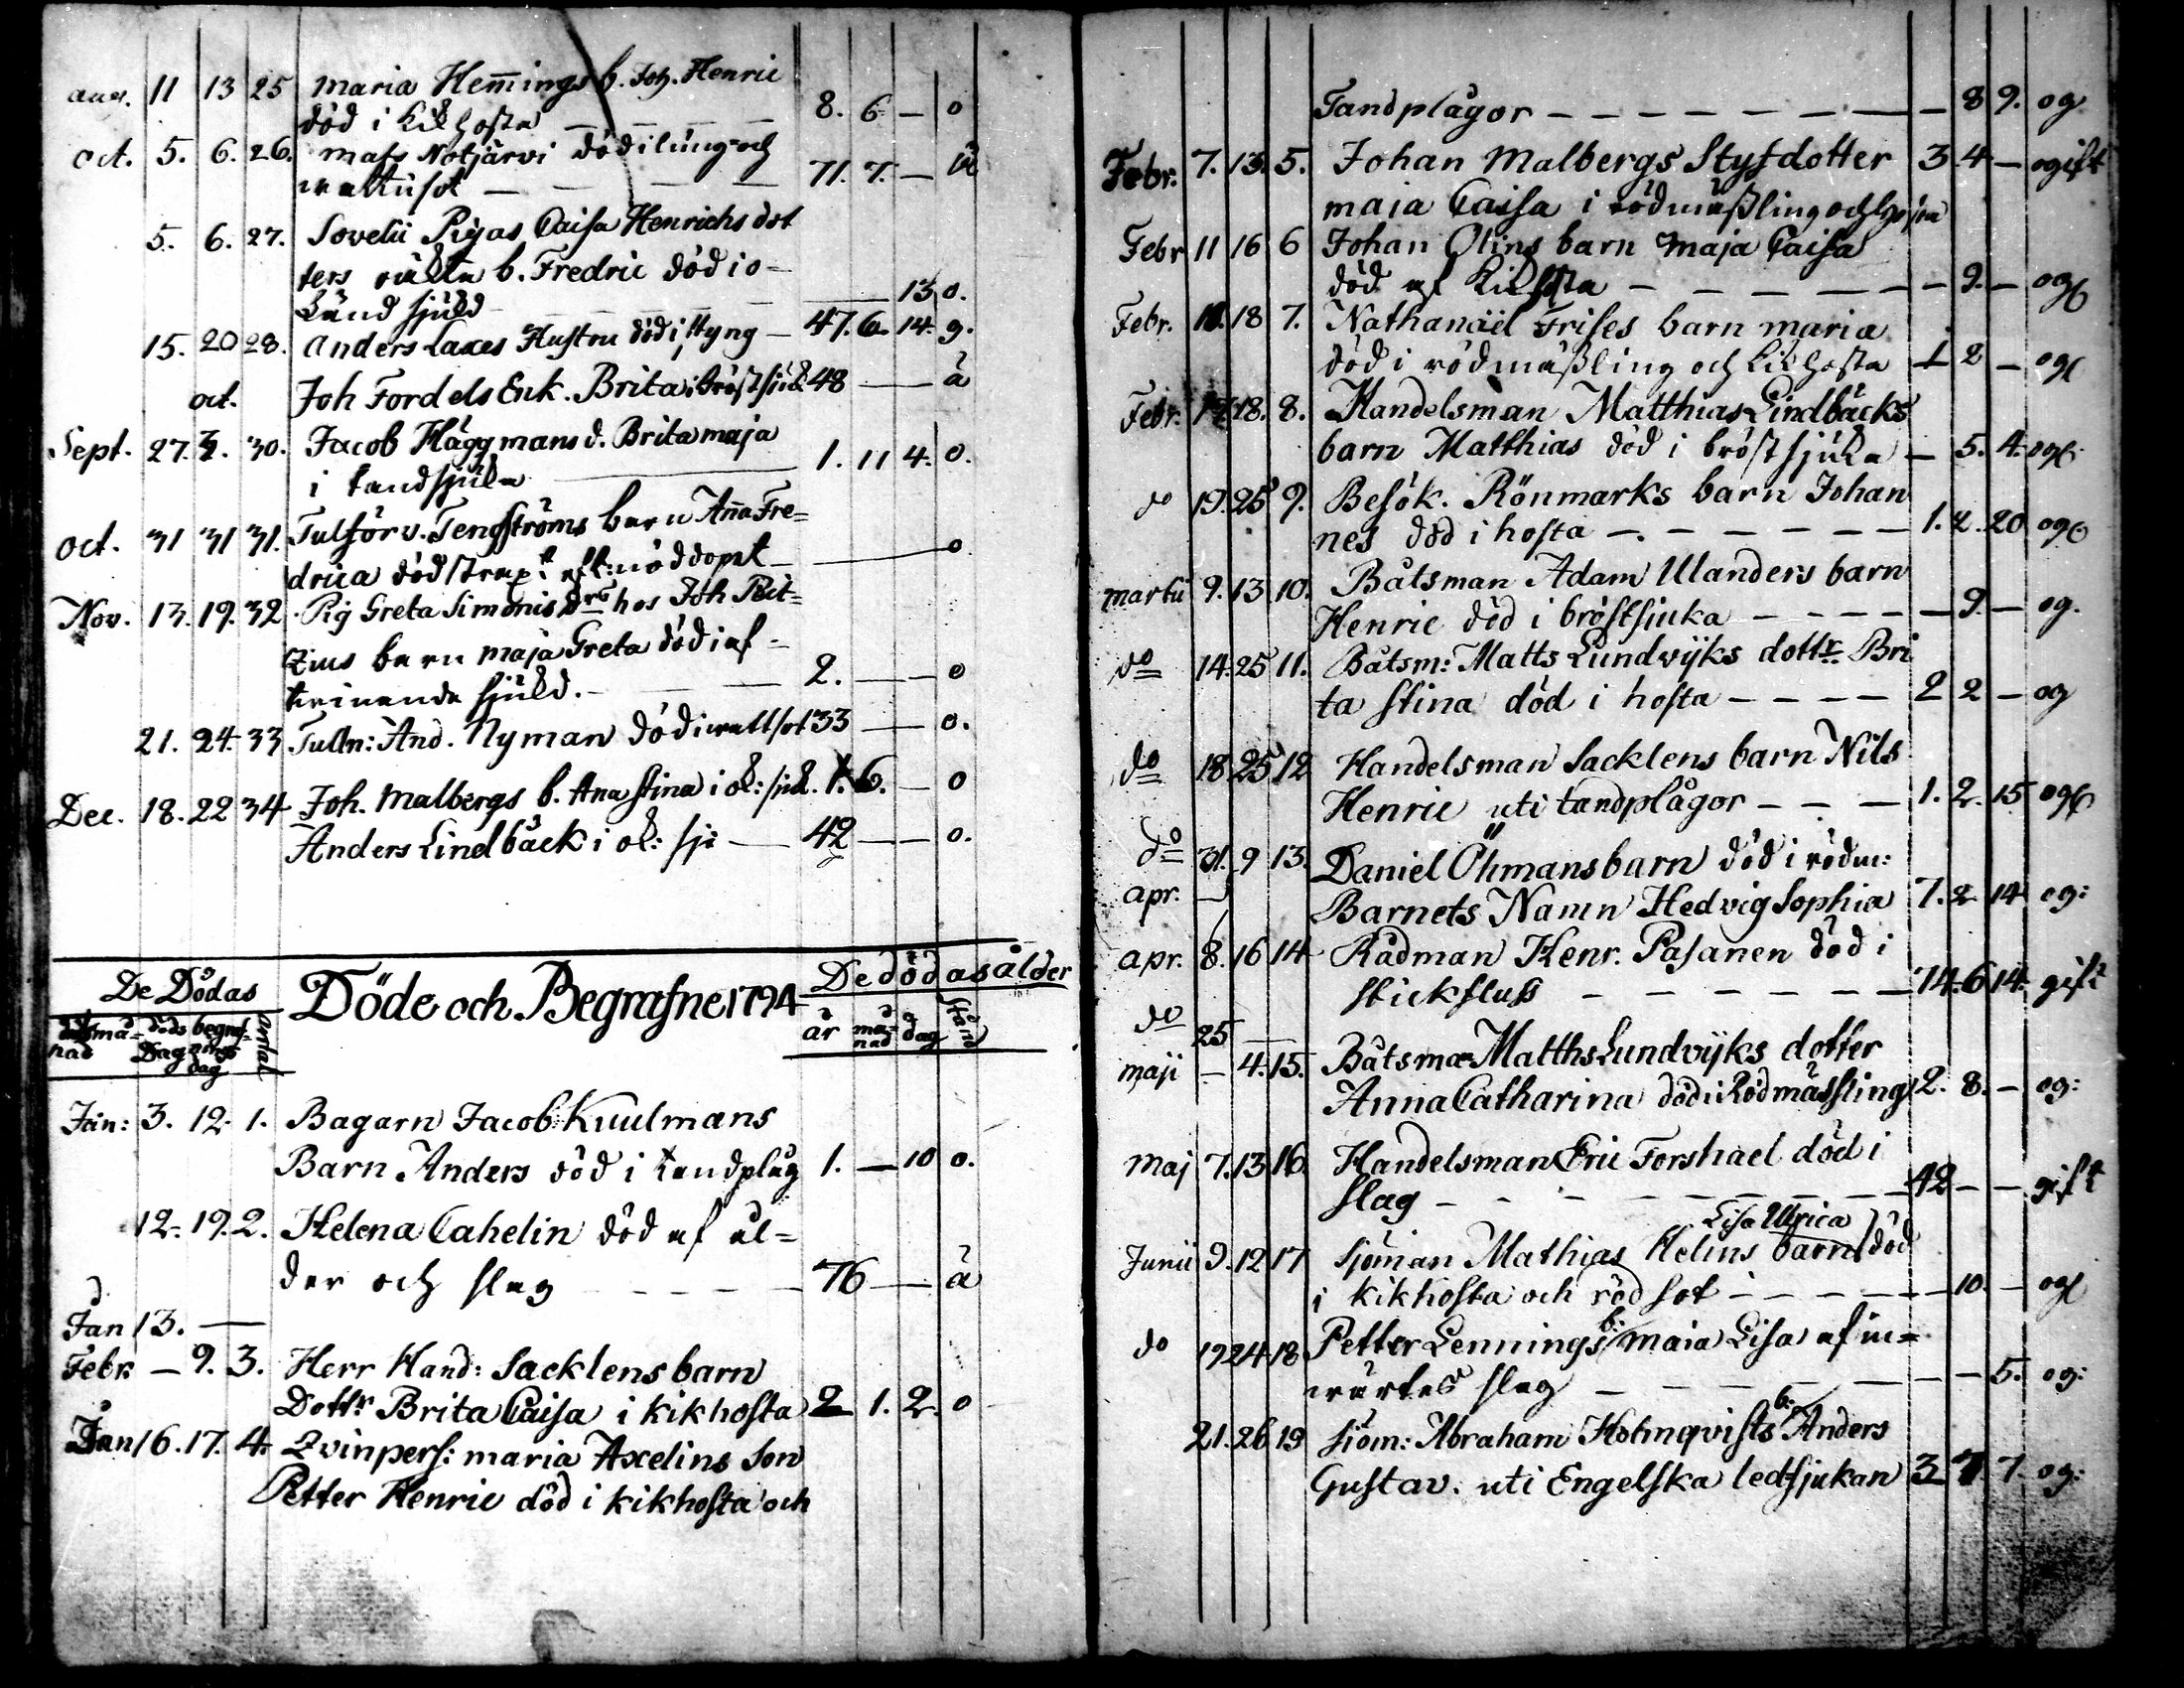 aug. 11 13 25 Maria Hem̅ings b. Joh. Henric
död i Kikhosta — 8. 6 — o
oct. 5. 6. 26. Mats Notjärvi död i lung- och
wattusot — 71. 7. — ä
5. 6. 27. Sovelii Pigas Caisa Henrichs dot
ters oäkta b. Fredric död i o-
känd sjukd — 13 o.
15. 20 28. Anders Laxes Hustru död i styng — 47. 6. 14. g.
oct. Joh Fordels Enk. Brita i bröstsjuk 48 — ä
Sept. 27. 2. 30. Jacob Häggmans d. Brita maja
i tandsjuka 1. 11 4. o.
oct. 31 31 31. Tulförv. Tengströms barn An̅a Fre=
drica död strax eft: nöddopet — o
Nov. 13. 19. 32 Pig Greta Simonis drs hos Joh
barn maja Greta död i af-
tvinande sjukd. — 2. — o
21. 24. 33 Tulln: And. Nyman död i wattsot 33 — o.
Dec. 18. 22 34 Joh. Malbergs b. Ana Stina i ok: sjuk. 1. 6. — o
Anders Lindbäck i ok: sj: — 42 — o.
De Dödas
Döde och Begrafne 1794
De dödas ålder
månad döds Dag begraf-nings dag antal
år månad dag stånd
Jan: 3. 12. 1. Bagarn Jacob Kuulmans
Barn Anders död i tandplåg 1. — 10 o.
12. 19. 2. Helena Cahelin död af ål=
der och slag — 76 — ä
Jan 13. —
Febr. — 9. 3. Herr Hand: Sacklens barn
Dottr Brita Caisa i kikhosta 2 1. 2. o
Jan 16. 17. 4. Qvinpers: maria Axelins Son
Petter Henric död i kikhosta och
Tandplågor — 8 9. og
Febr. 7. 13. 5. Johan Malbergs Styfdotter 3 4 — ogift
maja Caisa i rödmäßling och hosta
Febr 11 16 6 Johan Olins barn Maja Caisa
död af Kikhosta — 9. — og
Febr. 18. 18 7. Nathanäel Frises barn maria
död i rödmäßling och Kikhosta 1 2 — og
Febr. 17 18. 8. Handelsman Matthias Lindbäcks
barn Matthias död i bröstsjuka — 5. 4. og
do 19. 25 9. Besök. Rönmarks barn Johan
nes död i hosta — 1. 2. 20 og
martii 9. 13. 10. Båtsman Adam Ulanders barn
Henric död i bröstsjuka — 9. — og.
do 14. 25 11. Båtsm: Matts Lundvijks dottr Bri
ta Stina död i hosta — 2 2 — og
do 18. 25 12 Handelsman Sacklens barn Nils
Henric uti tandplågor — 1. 2. 15 og
do 31. 9 13. Daniel Öhmans barn död i rödm:
apr. Barnets Namn Hedvig Sophia 7. 2 14 og:
apr. 8. 16 14 Rådman Henr. Pasanen död i
stickfluß — 74. 6 14. gift
do 25 —
maji — 4. 15. Båtsman Matths Lundvijks dotter
Anna Catharina död i Rödmässling 2. 8. — og:
Maj 7. 13 16. Handelsman Eric Forshael död i
slag — 42 — — gift
Lisa Ulrica
Junii 9. 12 17 Sjöman Mathias Helins barn död
i kikhosta och rödsot — 10. — og
do 19 24 18 Petter Lennings b: Maia Lisa af in=
wärtes slag — 5. og:
21. 26 19 Siöm: Abraham Holmqvists b: Anders
Gustav. uti Engelska ledsjukan 3 7. 7. og: